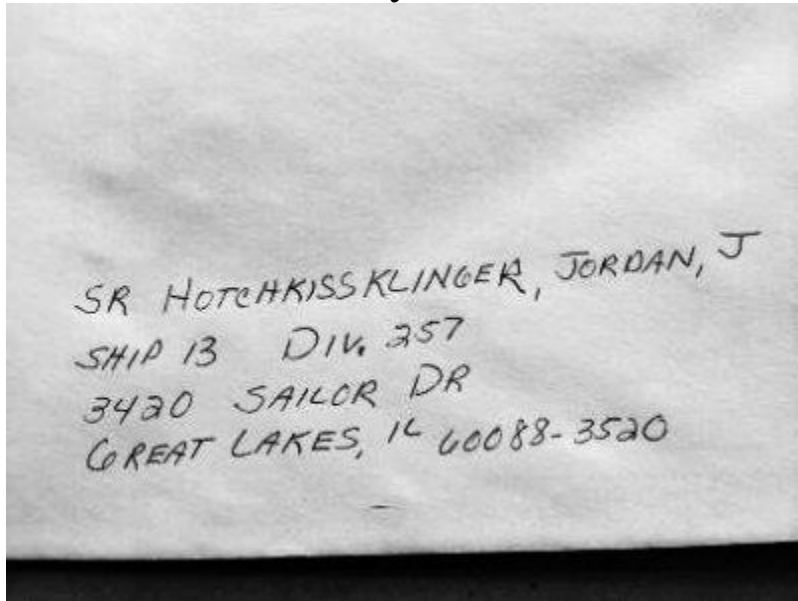 SR HOTCHKISSKLINGER, JORDAN, J
SHIP 13 DIV. 257
3420 SAILOR DR
GREAT LAKES, IL 60088-3520